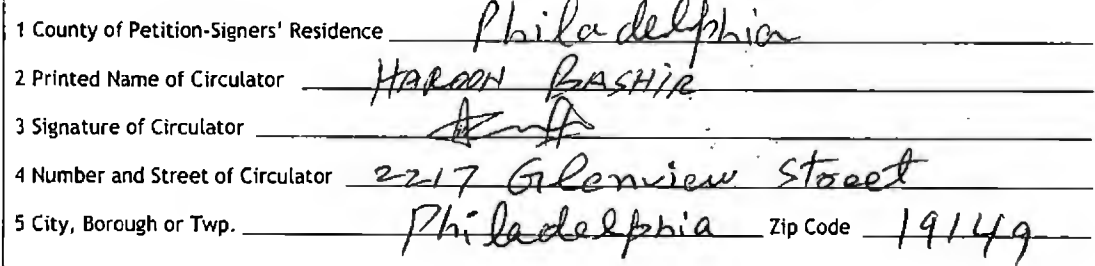 1 County of Petition-Signers' Residence Philadelphia
2 Printed Name of Circulator HAROON BASHIR
3 Signature of Circulator
4 Number and Street of Circulator 2217 Glenview Street
5 City, Borough or Twp. Philadelphia Zip Code 19149